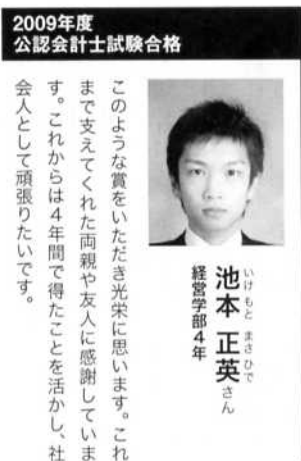 2009年度
公認会計士試験合格
いけもと まさひで
池本 正英さん
経営学部4年
このような賞をいただき光栄に思います。これ
まで支えてくれた両親や友人に感謝していま
す。これからは4年間で得たことを活かし、社
会人として頑張りたいです。